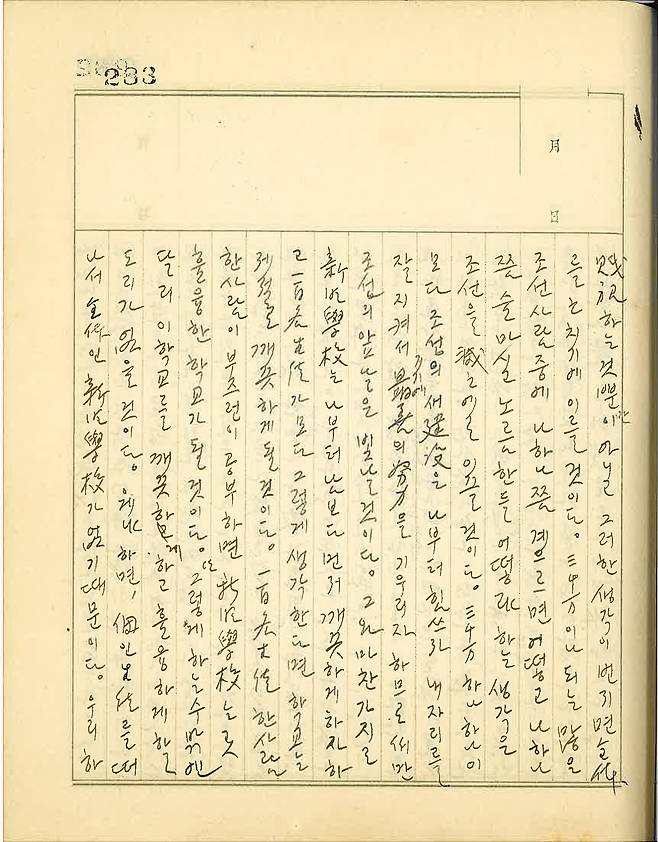 283
月
日
賤視하는 것 뿐만이 아닐 그러한 생각이 번지면 全体
를 는 치기에 이를 것이다. 三千万이나 되는 많은
조선사람 중에 나 하나쯤 게으르면 어떻고 나 하나
쯤 술 마실 노름 한들 어떻랴 하는 생각은
조선을 滅亡에로 이끌 것이다. 三千万 하나하나이
모다 조선의 새 建設을 나부터 힘쓰자 내 자리를
잘 지켜서 最善의 努力을 기우리자 하므로써만
조선의 앞날은 빛날 것이다. 그와 마찬가지로
學校는 나부터 남보다 먼저 깨끗하게 하자 하
고 一百名 生徒가 모다 그렇게 생각한다면 학교는
깨끗하게 될 것이다. 一百名 生徒 한사람
한사람이 부즈런이 공부하면 學校는 곳
훌융한 학교가 될 것이다. 또 그렇게 하는 수밖엔
달리 이 학교를 깨끗하게 하고 훌융하게 할
도리가 없을 것이다. 웨냐하면, 個人 生徒를 떠
나서 全体인 學校가 없기 때문이다. 우리 하